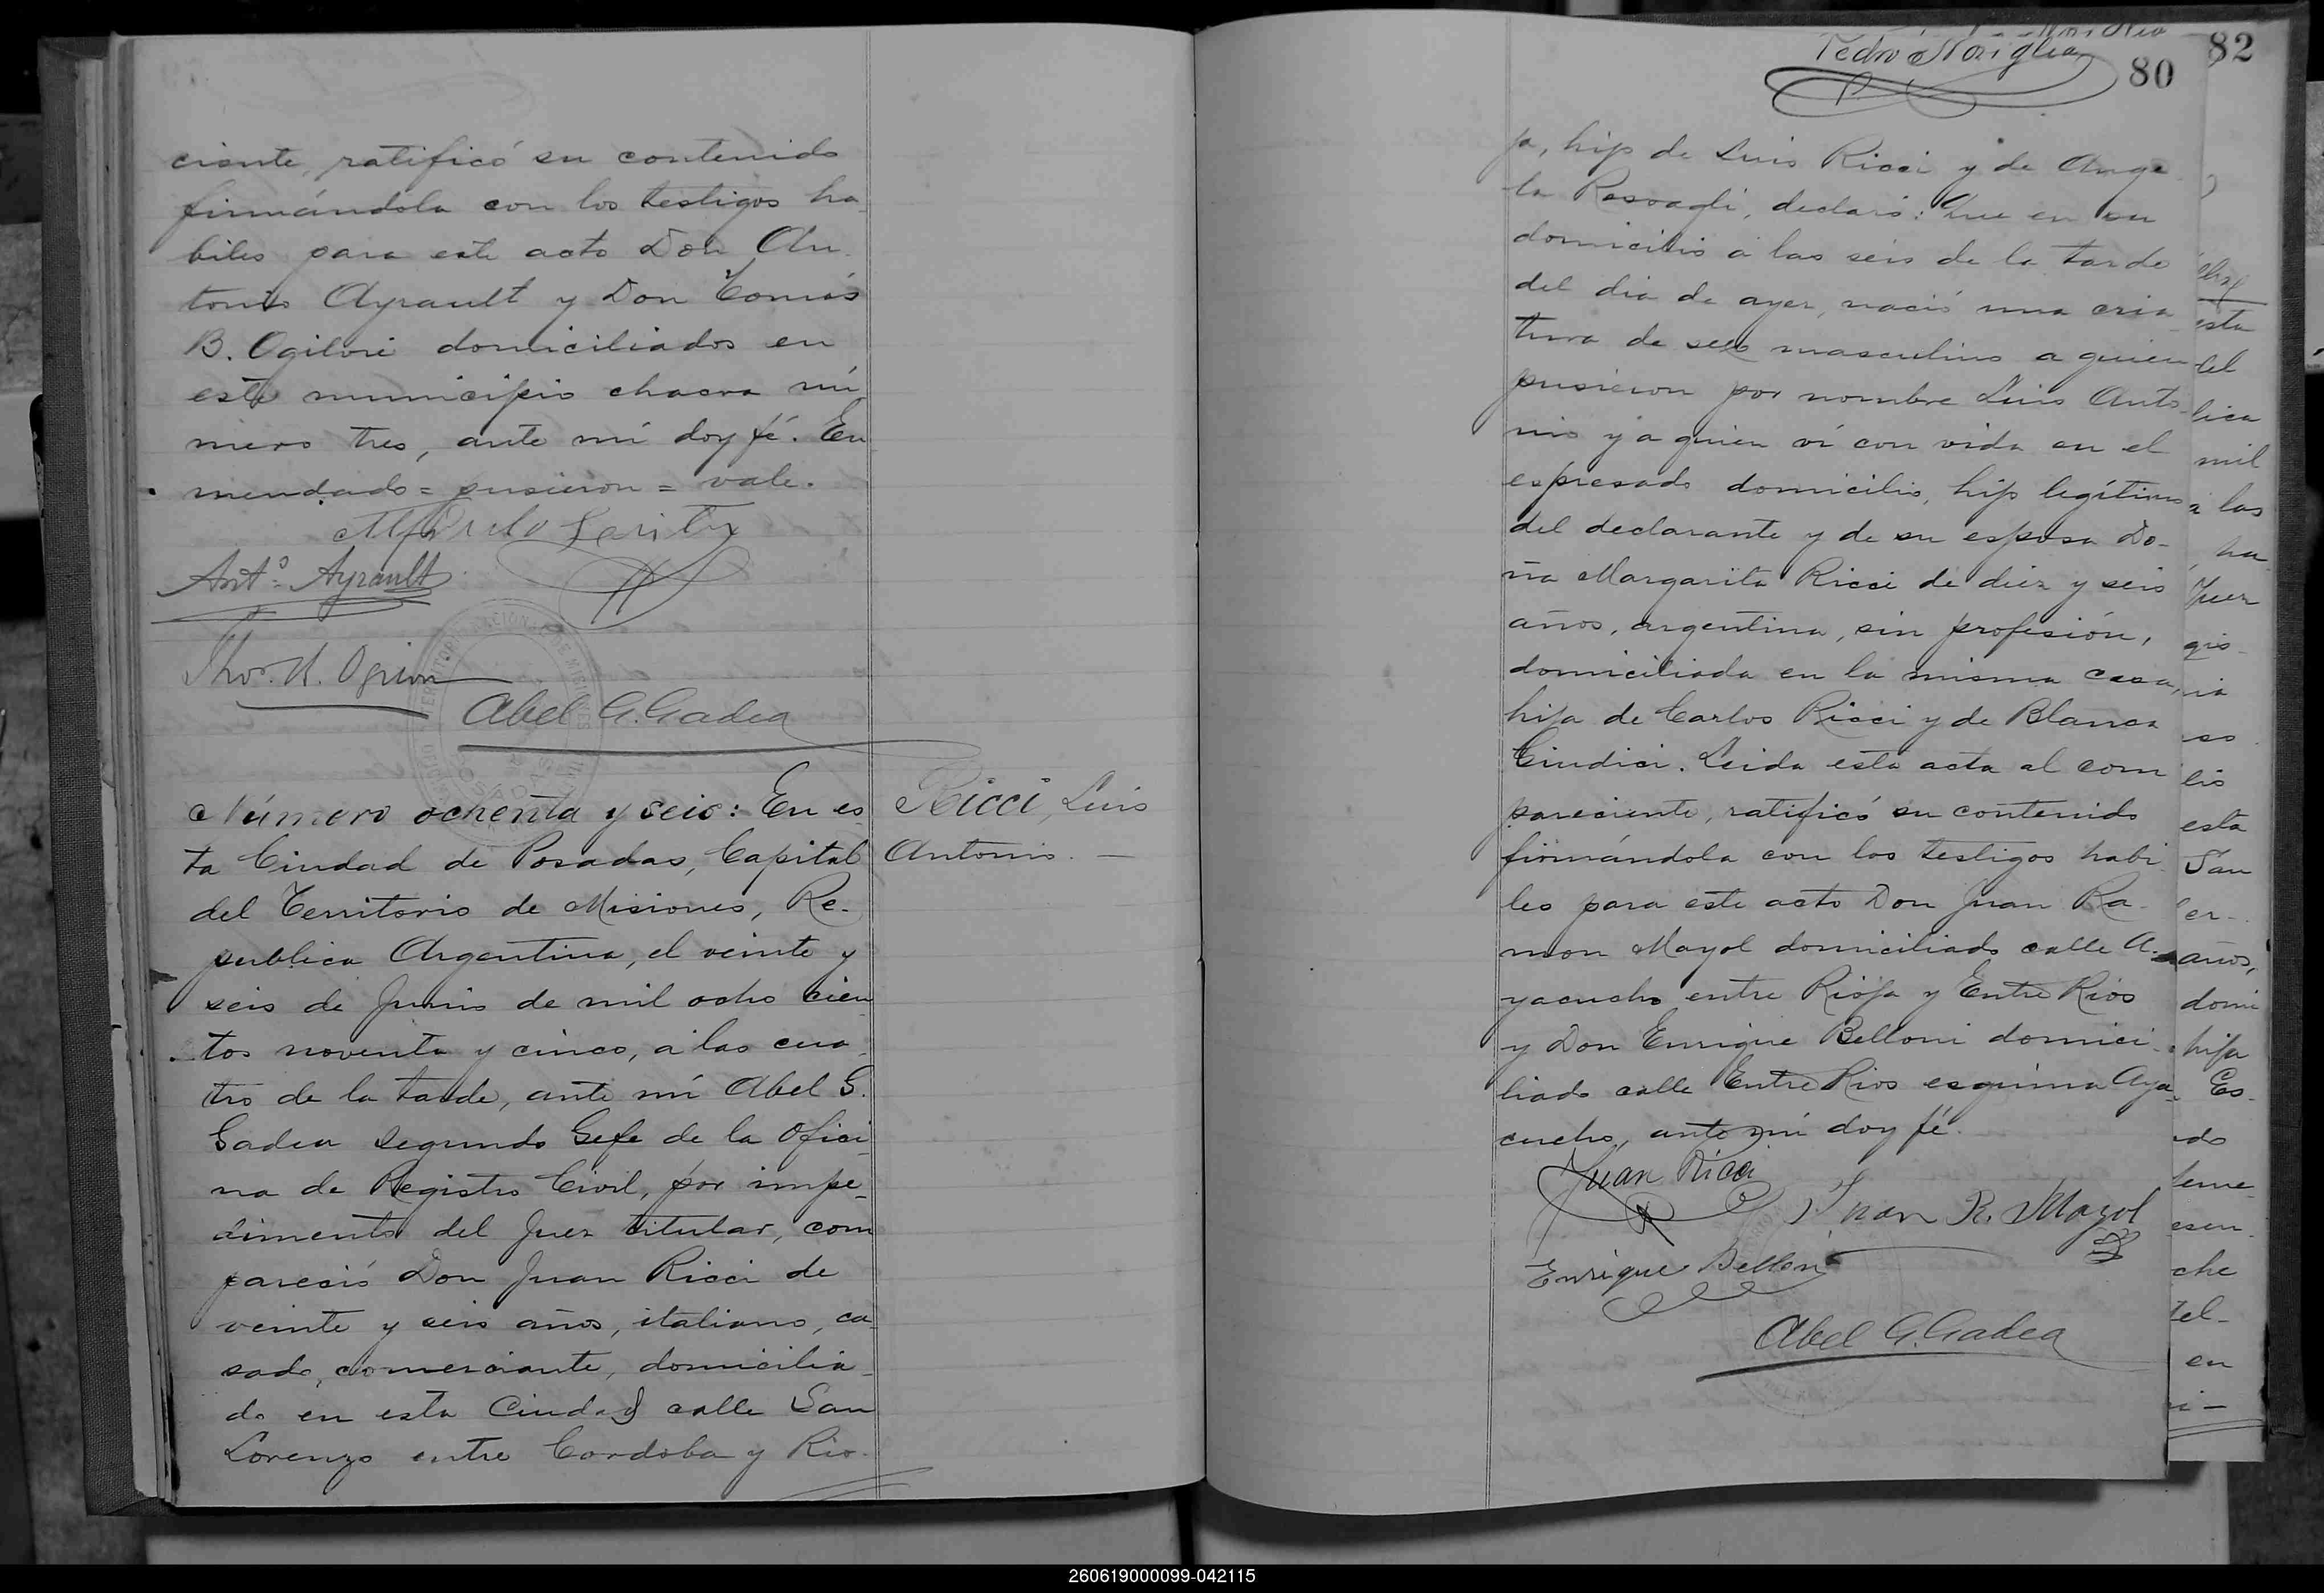 ciente, ratificó su contenido
firmándola con los testigos ha
biles para este acto Don An
tonio Ayrault y Don Tomás
B. Ogilvie domiciliados en
este municipio chacra nú
mero tres, ante mí doy fé. En
mendado = pusieron = vale.
Ant.º Ayrault
Abel G. Gadea
Número ochenta y seis: En es
ta Ciudad de Posadas, Capital
del Territorio de Misiones, Re-
publica Argentina, el veinte y
seis de Junio de mil ocho cien
tos noventa y cinco, á las cua
tro de la tarde, ante mí Abel G.
Gadea Segundo Gefe de la Ofici
na de Registro Civil, por impe
dimento del Juez titular, com
pareció Don Juan Ricci de
veinte y seis años, italiano, ca
sado, comerciante, domicilia
do en esta Ciudad calle San
Lorenzo entre Cordoba y Rio-
Ricci, Luis
Antonio. —
Pedro Noriglia
80
ja, hijo de Luis Ricci y de Ange
la, declaró: Que en su
domicilio á las seis de la tarde
del dia de ayer, nació una cria
tura de sexo masculino a quien
pusieron por nombre Luis Anto
nio y a quien ví con vida en el
espresado domicilio, hijo legítimo
del declarante y de su esposa Do-
ña Margarita Ricci de diez y seis
años, argentina, sin profesión,
domiciliada en la misma casa,
hija de Carlos Ricci y de Blanca
Giudici. Leida esta acta al com
pareciente, ratificó su contenido
firmándola con los testigos habi
les para este acto Don Juan Ra-
mon Mayol domiciliado calle A-
yacucho entre Rioja y Entre Rios
y Don Enrique Belloni domici-
liado calle Entre Rios esquina Aya
cucho, ante mí doy fé.
Juan Ricci
Juan R. Mayol
Enrique Belloni
Abel G. Gadea
82
esta
el
lica
mil
a las
ha
Juez
gis-
ria
so
lio
esta
San
er-
años,
domi
hija
Es-
do
eme
esen
che
tel-
en
i—
260619000099-042115